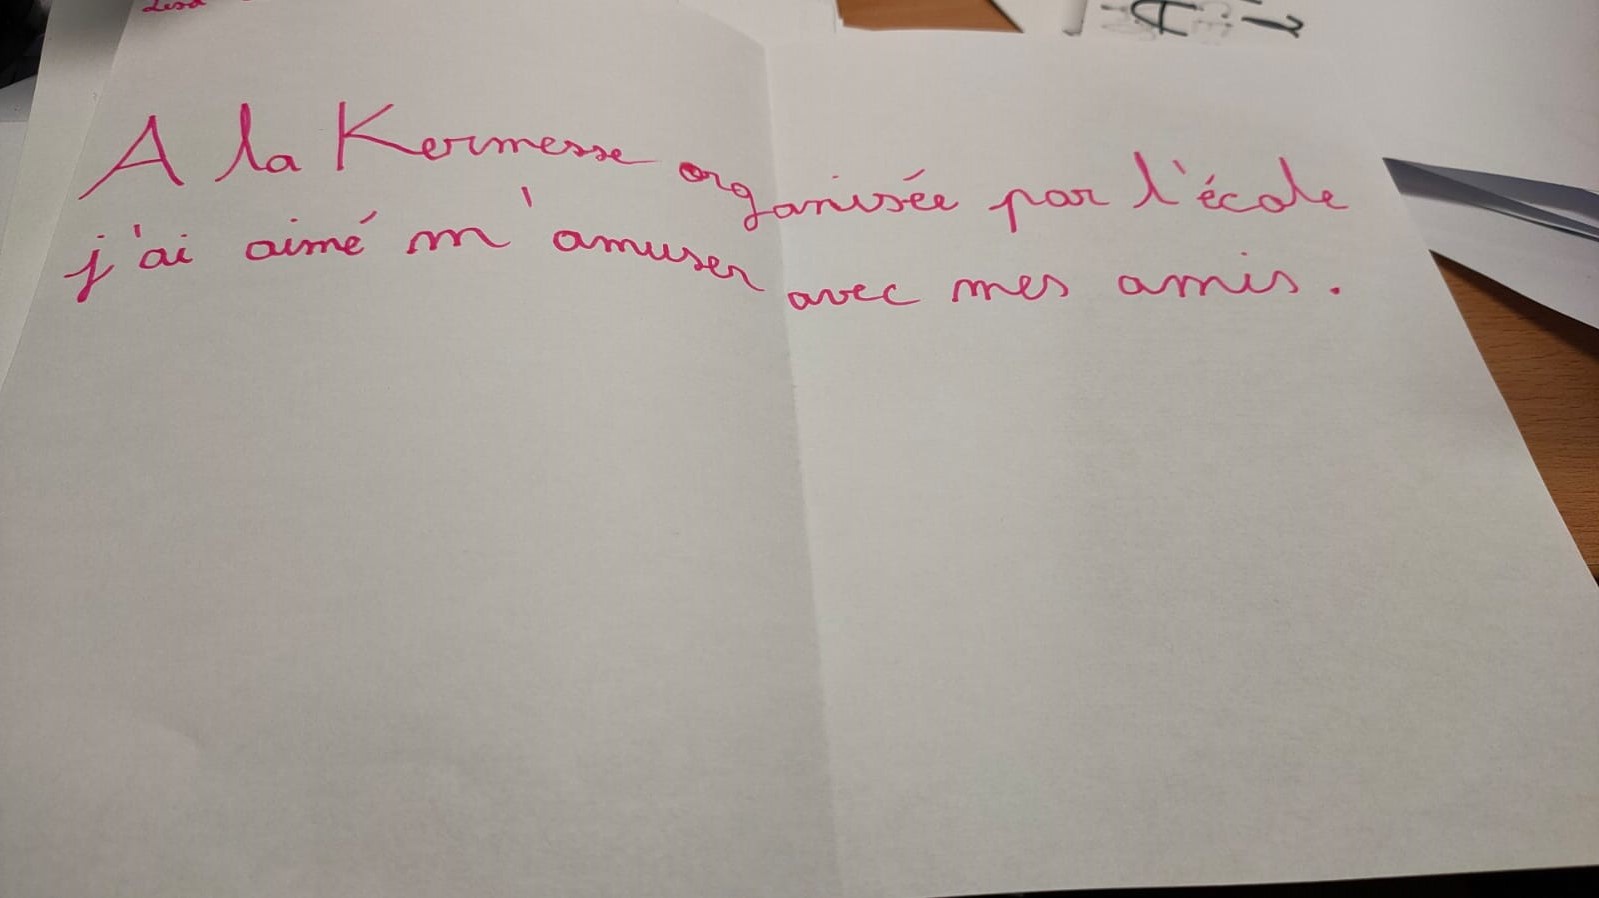 A la Kermesse organisée par l'école
j'ai aimé m'amuser avec mes amis.